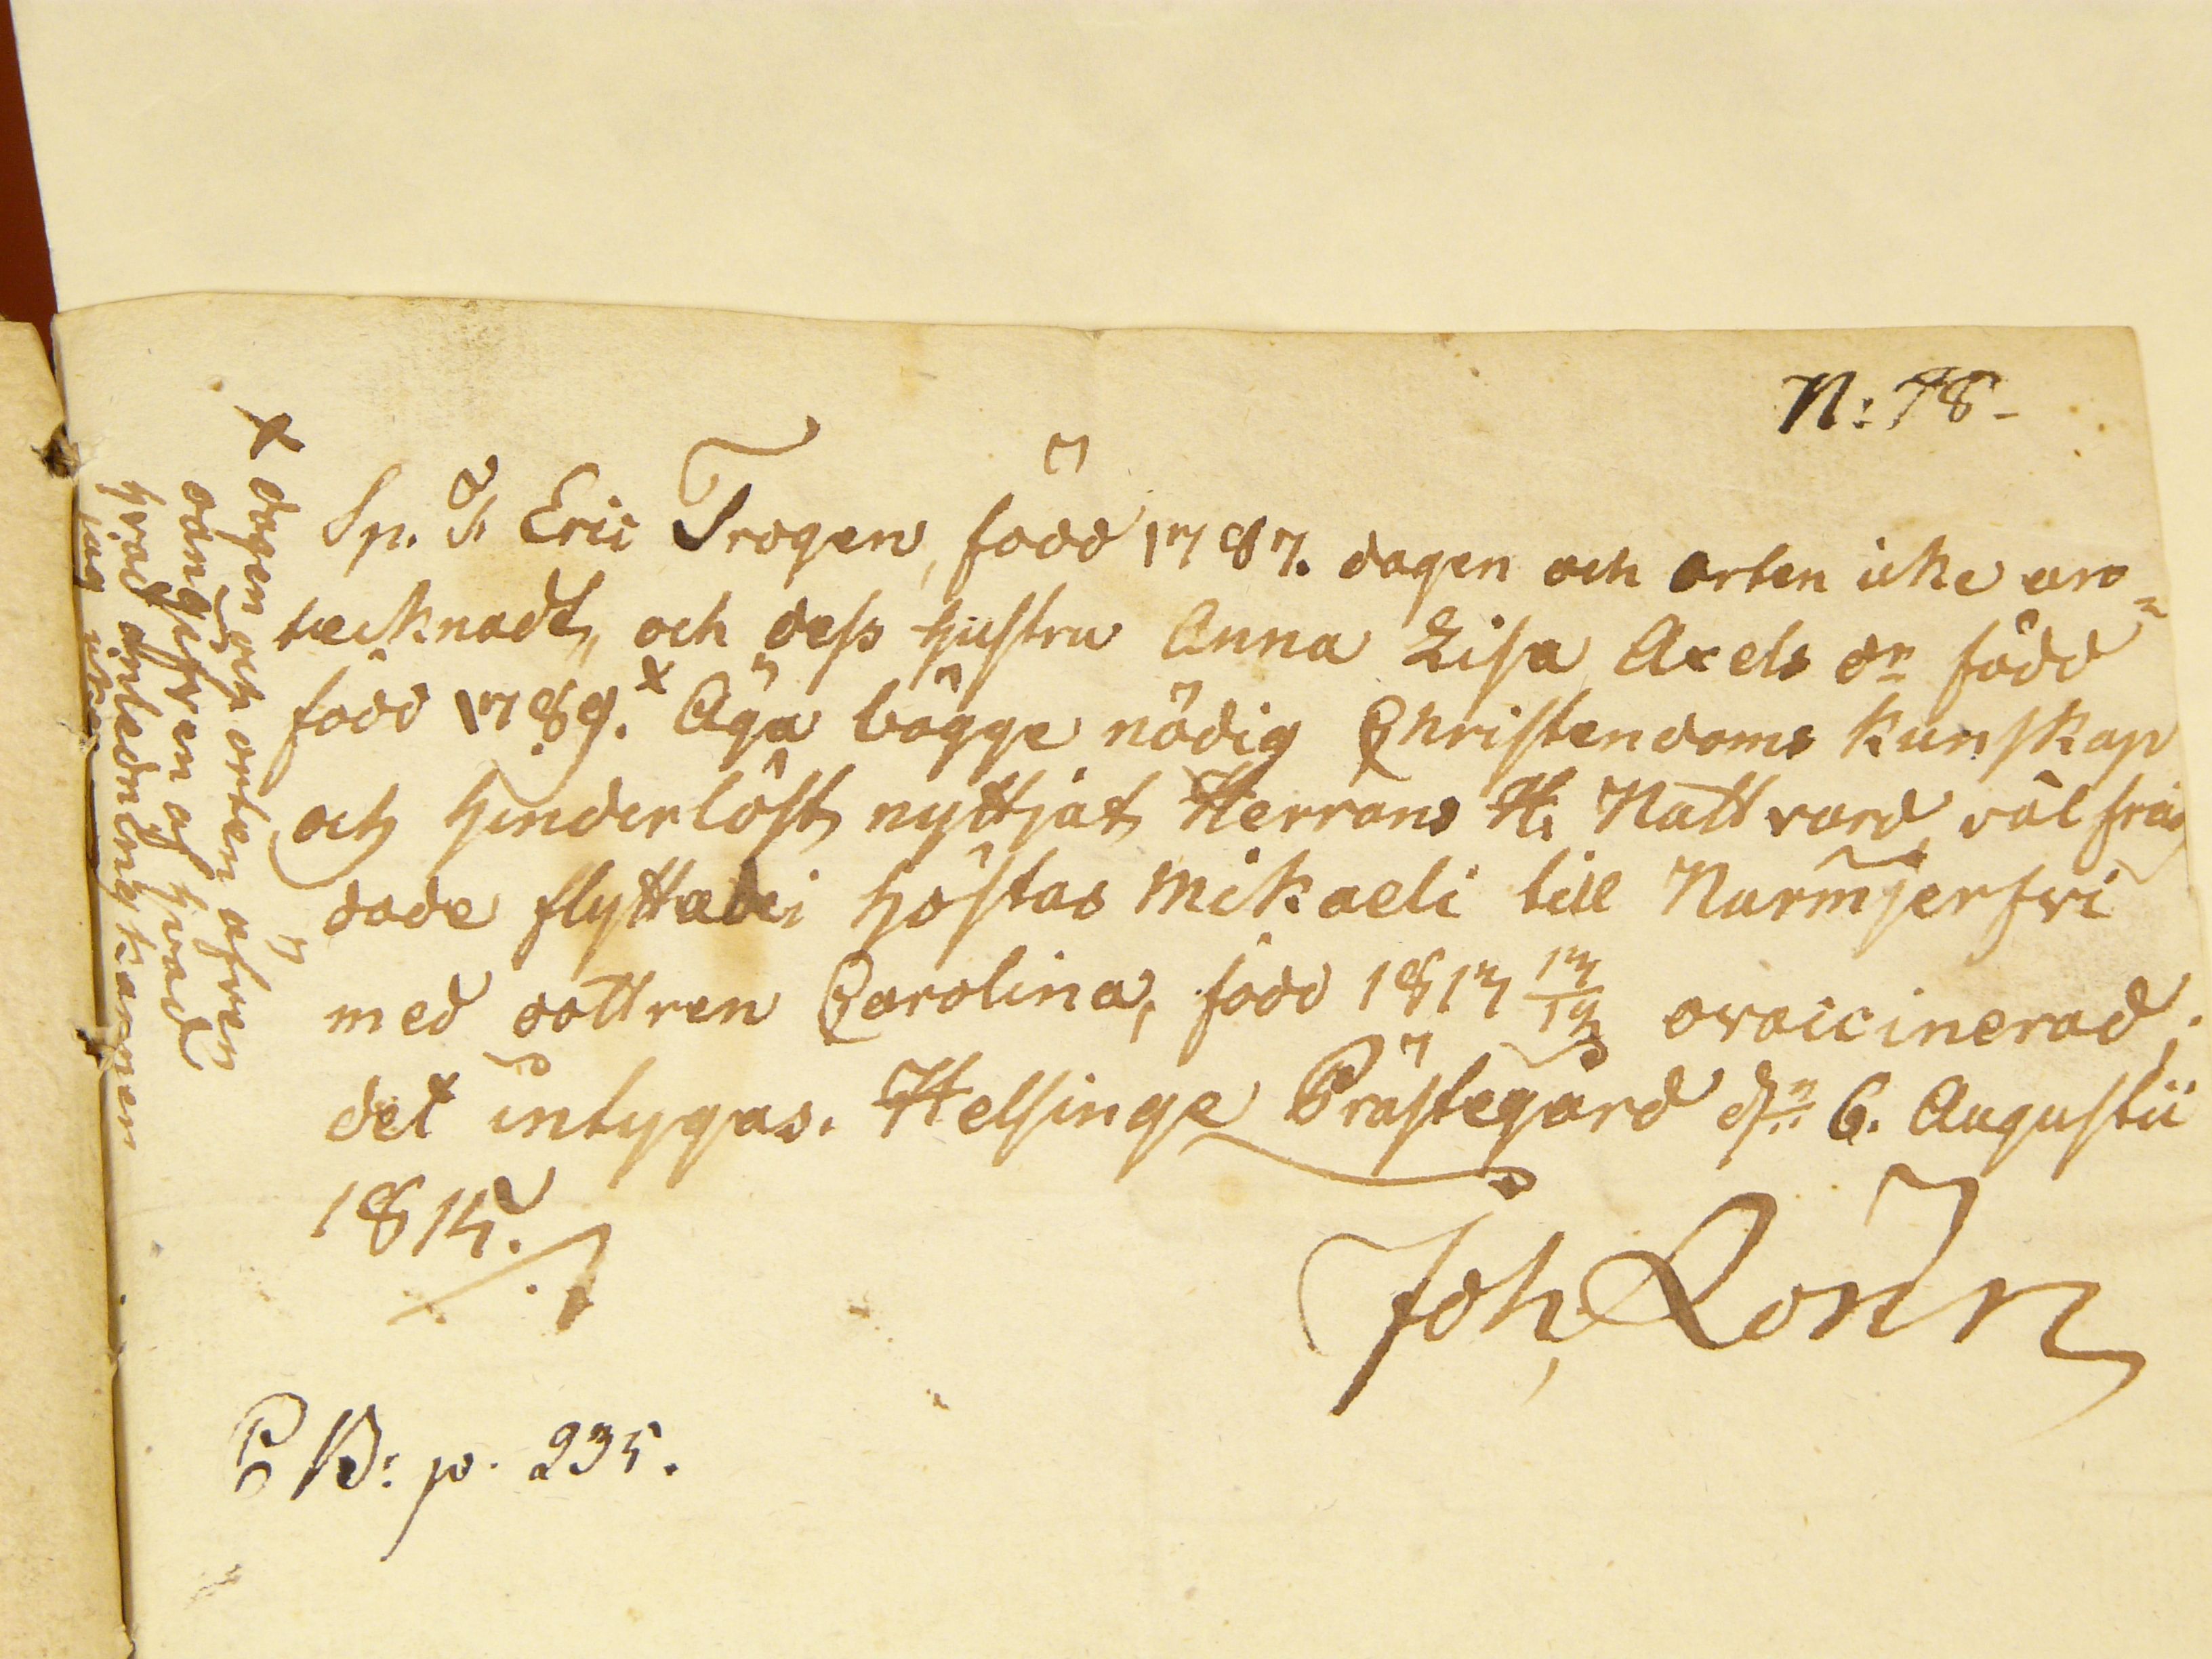 N: 78-
Sp. J. Eric Trogen, född 1787. dagen och orten icke an=
tecknadt, och dess hustru Anna Lisa Axels dn född
född 1789.x Äga bägge nödig Christendoms kunskap
och hinderlöst nyttjat Herrans H. Nattvard, väl fräg
dade flyttade i höstas Mikaeli till Nurmjerfvi
med dottren Carolina, född 18 ovaccinerad;
det intygas. Helsinge Prästegård dn 6. Augustii
1814.
Joh, Lönn
C B: p. 235.
x dagen och orten äfven
oangifven af hvad
hvad anledning känner
jag icke